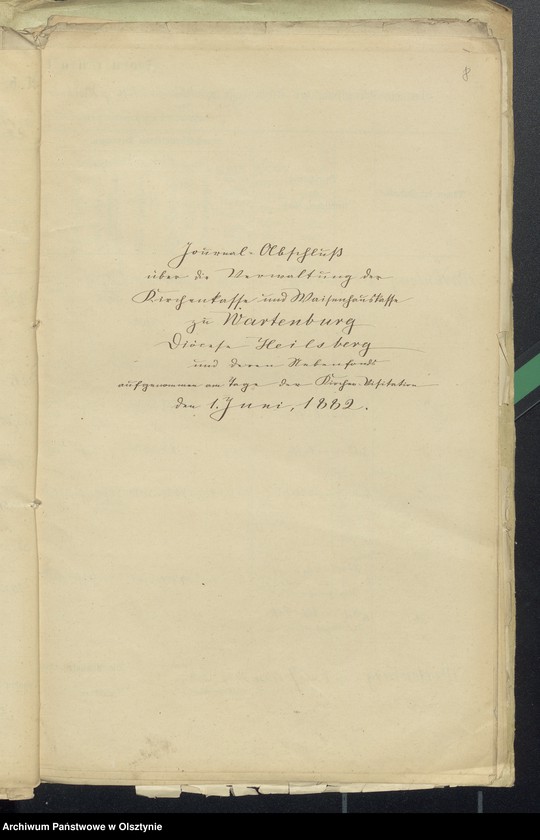 8
Journal-Abschluß
über die Verwaltung der
Kirchenkasse und Waisenhauskasse
zu Wartenburg
Diöcese Heilsberg
und deren Nebenfonds
aufgenommen am Tage der Kirchen-Visitation
den 1. Juni, 1882.
Archiwum Państwowe w Olsztynie